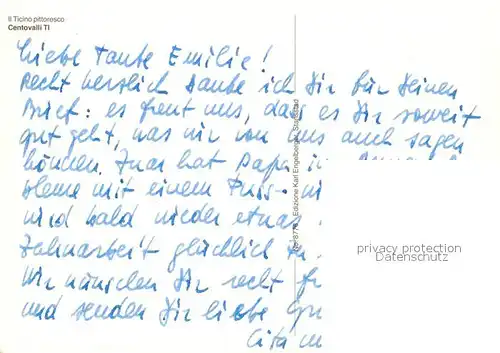 Il Ticino pittoresco
Centovalli TI
Liebe Tante Emilie!
Recht herzlich danke ich Dir für Deinen
Brief: es freut uns, dass es Dir soweit
gut geht, was wir von uns auch sagen
können. Zwar hat Papa
bleme mit einem Fuss
wird bald wieder etwas
Zahnarbeit glücklich
Wir wünschen Dir recht
und senden Dir liebe
Cita
Edizione Karl Engelberger, Stansstad
privacy protection
Datenschutz